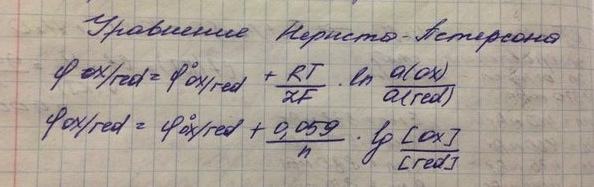 Уравнение Нернста-Петерсона
φ ox/red = φ° ox/red + RT/zF · ln a(ox)/a(red)
φ ox/red = φ° ox/red + 0,059/n · lg [ox]/[red]